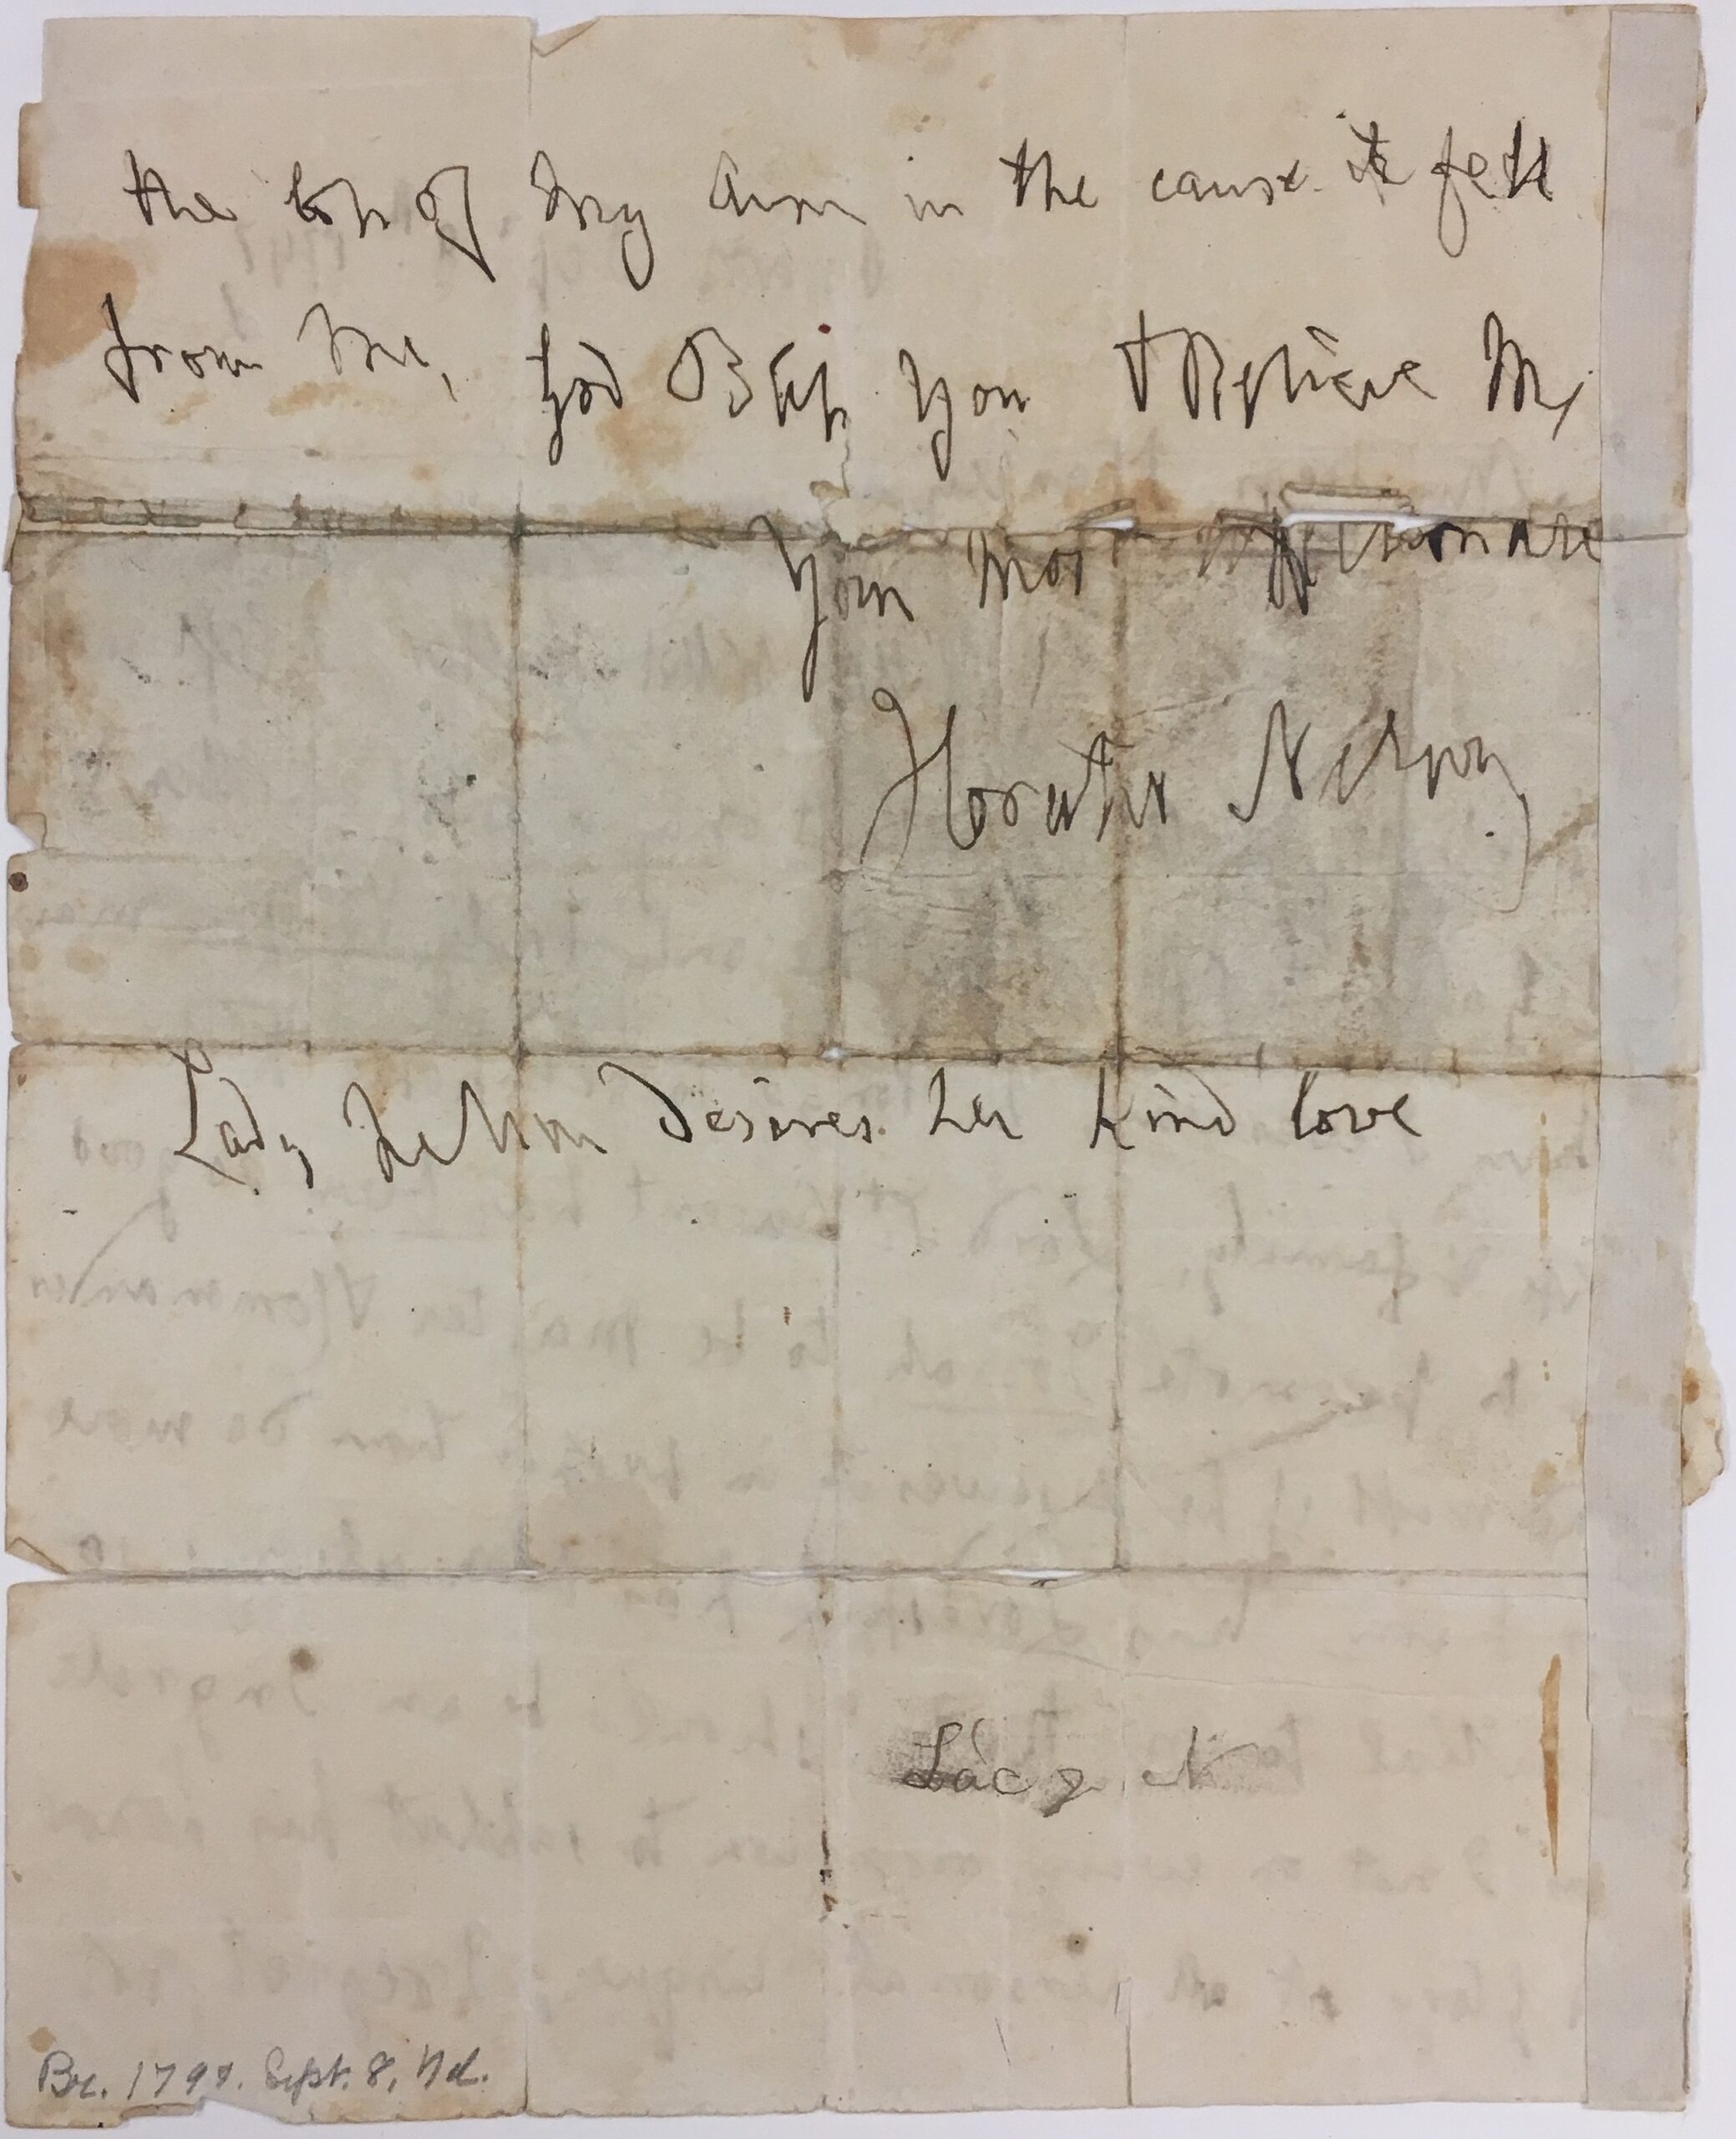 the loss of My Arm in the cause it fell
from Me, God Bless You & Believe Me
Your Most Affectionate
Horatio Nelson
Lady Nelson Desires her kind love
Lacy
1797. Sept. 8,